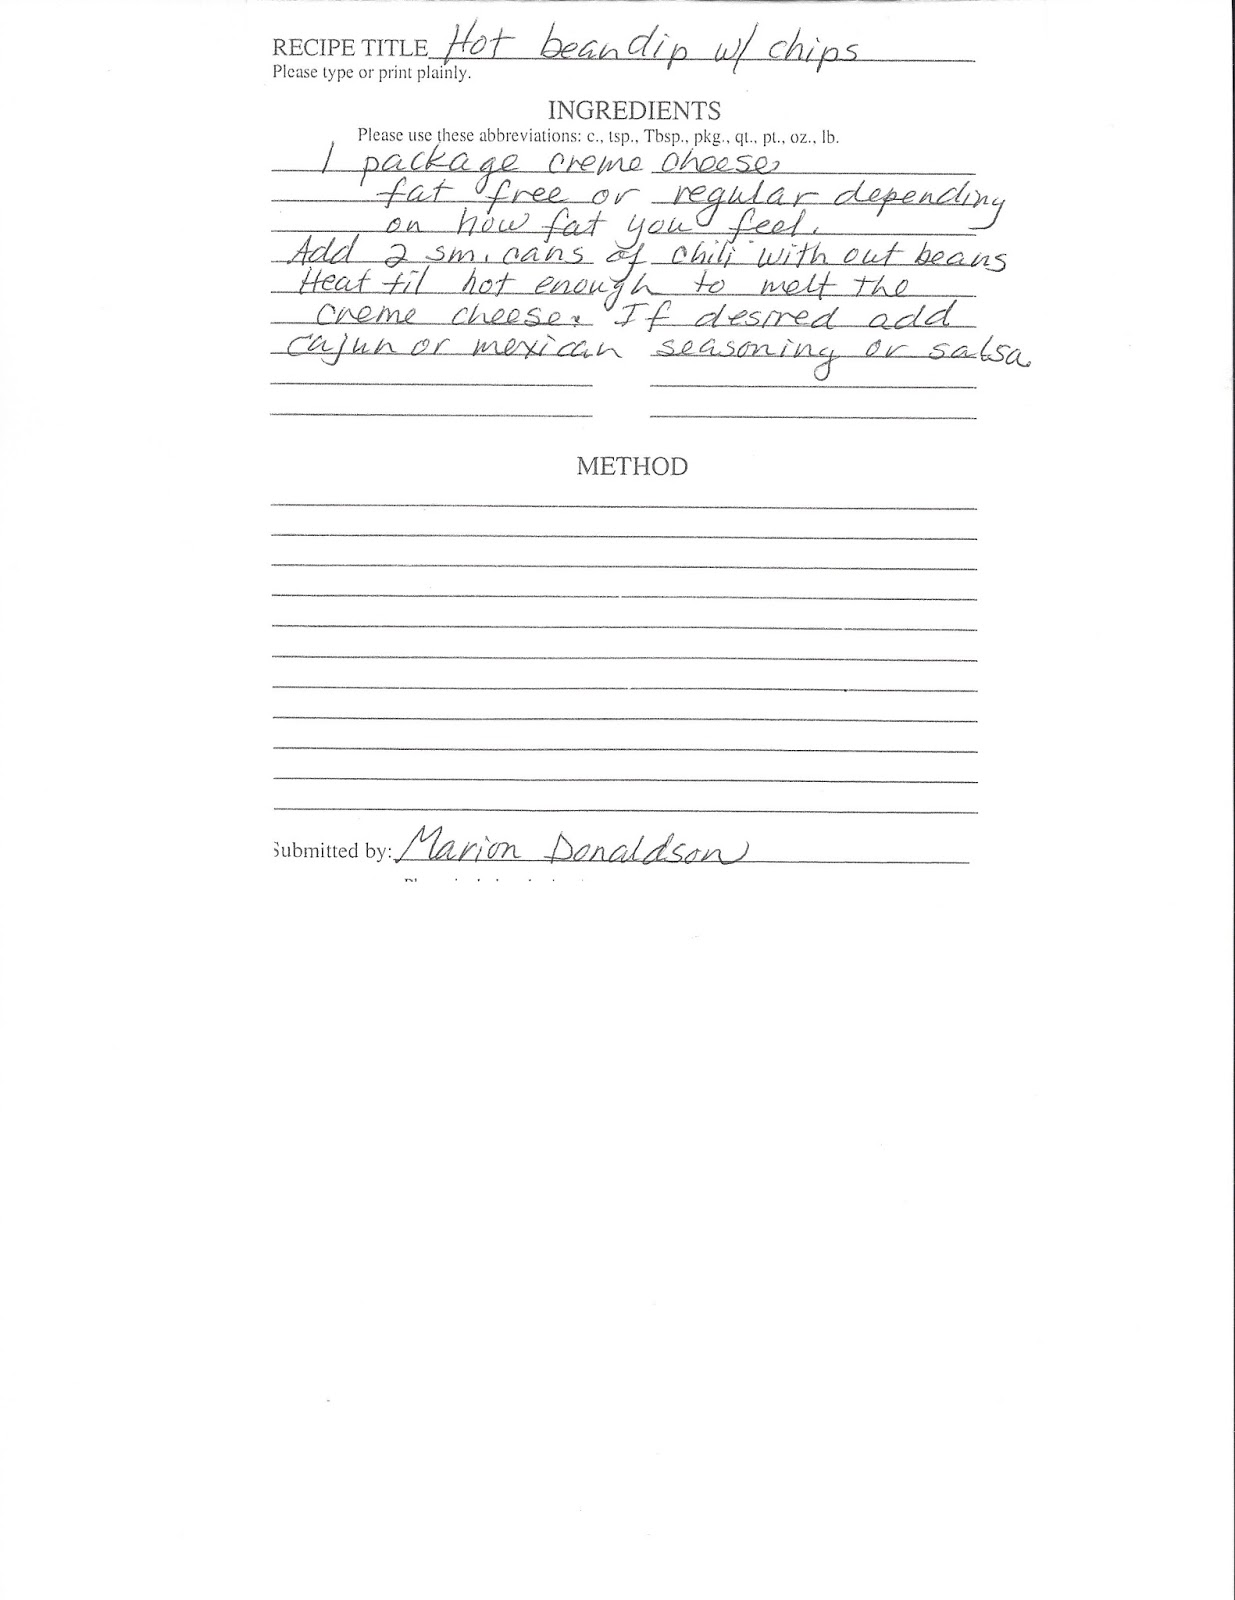 RECIPE TITLE Hot bean dip w/ chips
Please type or print plainly.
INGREDIENTS
Please use these abbreviations: c., tsp., Tbsp., pkg., qt., pt., oz., lb.
1 package creme cheese,
fat free or regular depending
on how fat you feel.
Add 2 sm. cans of chili with out beans
Heat til hot enough to melt the
creme cheese. If desired add
cajun or mexican seasoning or salsa.
METHOD
Submitted by: Marion Donaldson